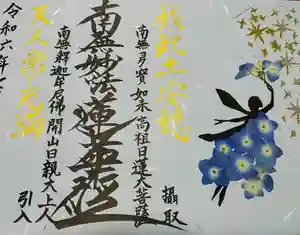 於此土安穏
南無多宝如来高祖日蓮大菩薩
攝取
南無妙法蓮華経
南無釈迦牟尼佛開山日親大上人
引入
天人常充満
令和六年